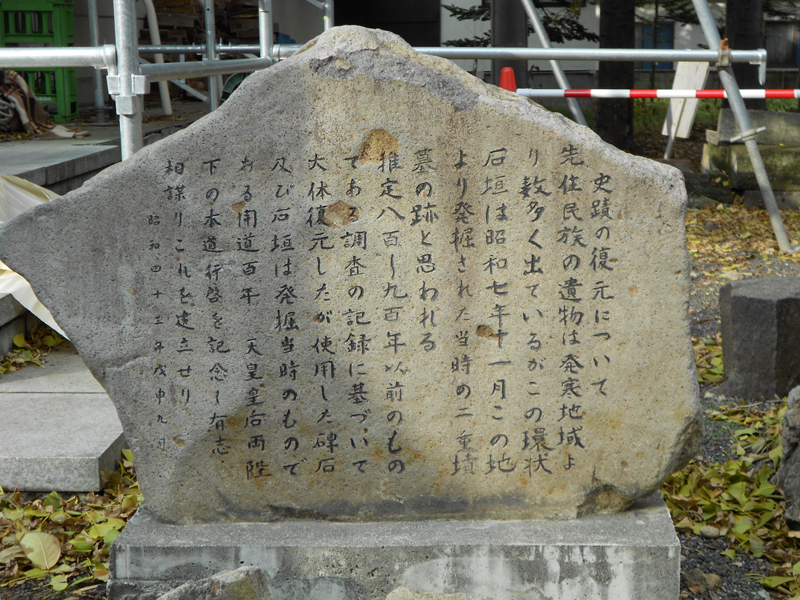 史蹟の復元について
先住民族の遺物は発寒地域よ
り数多く出ているがこの環状
石垣は昭和七年十一月この地
より発掘された当時の二重墳
墓の跡と思われる
推定八百〜九百年以前のもの
である調査の記録に基づいて
大体復元したが使用した碑石
及び石垣は発掘当時のもので
ある開道百年 天皇皇后両陛
下の本道行啓を記念し有志
相謀りこれを建立せり
昭和四十三年戊申九月